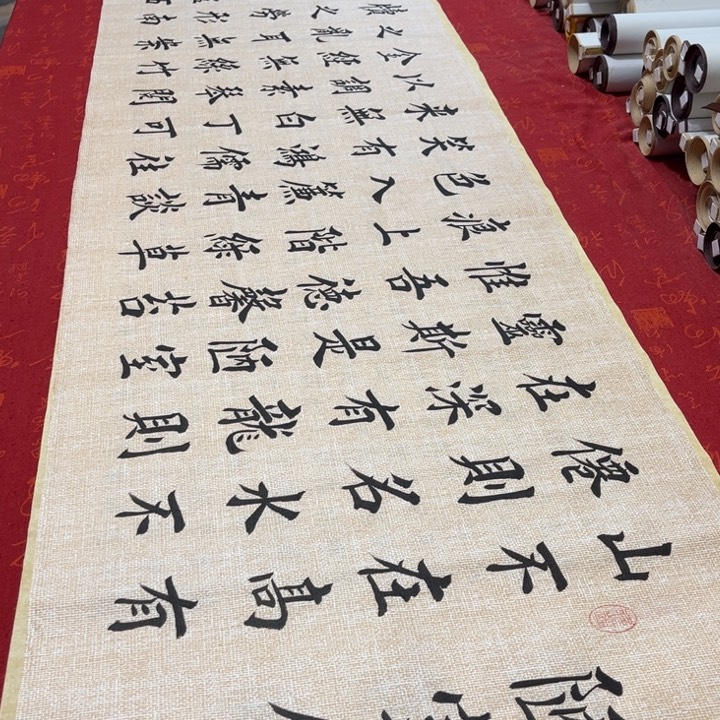 陋室
山不在高有
僊則名水不
在深有龍則
靈斯是陋室
惟吾德馨苔
痕上階綠草
色入簾青談
笑有鴻儒往
来無白丁可
以調素琴閱
金經無絲竹
之亂耳無案
牘之勞形南